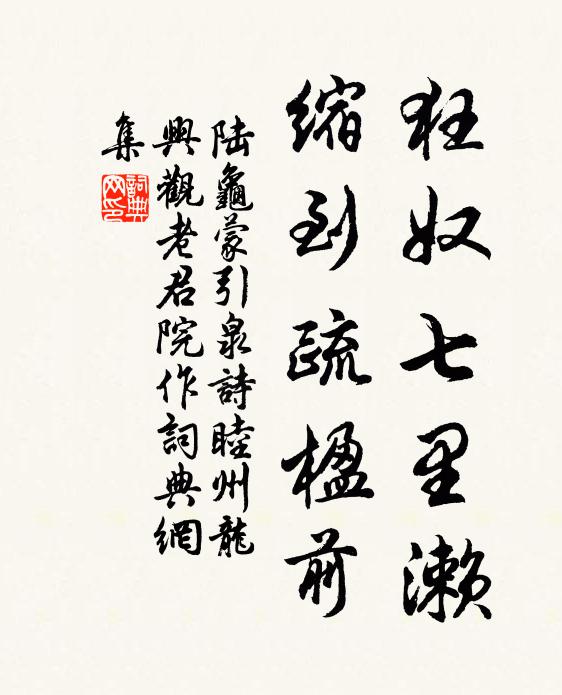 狂奴七里瀨
縮到疏楹前
陸龜蒙引泉詩睦州龍
興觀老君院作詞典網
集
詞典網印